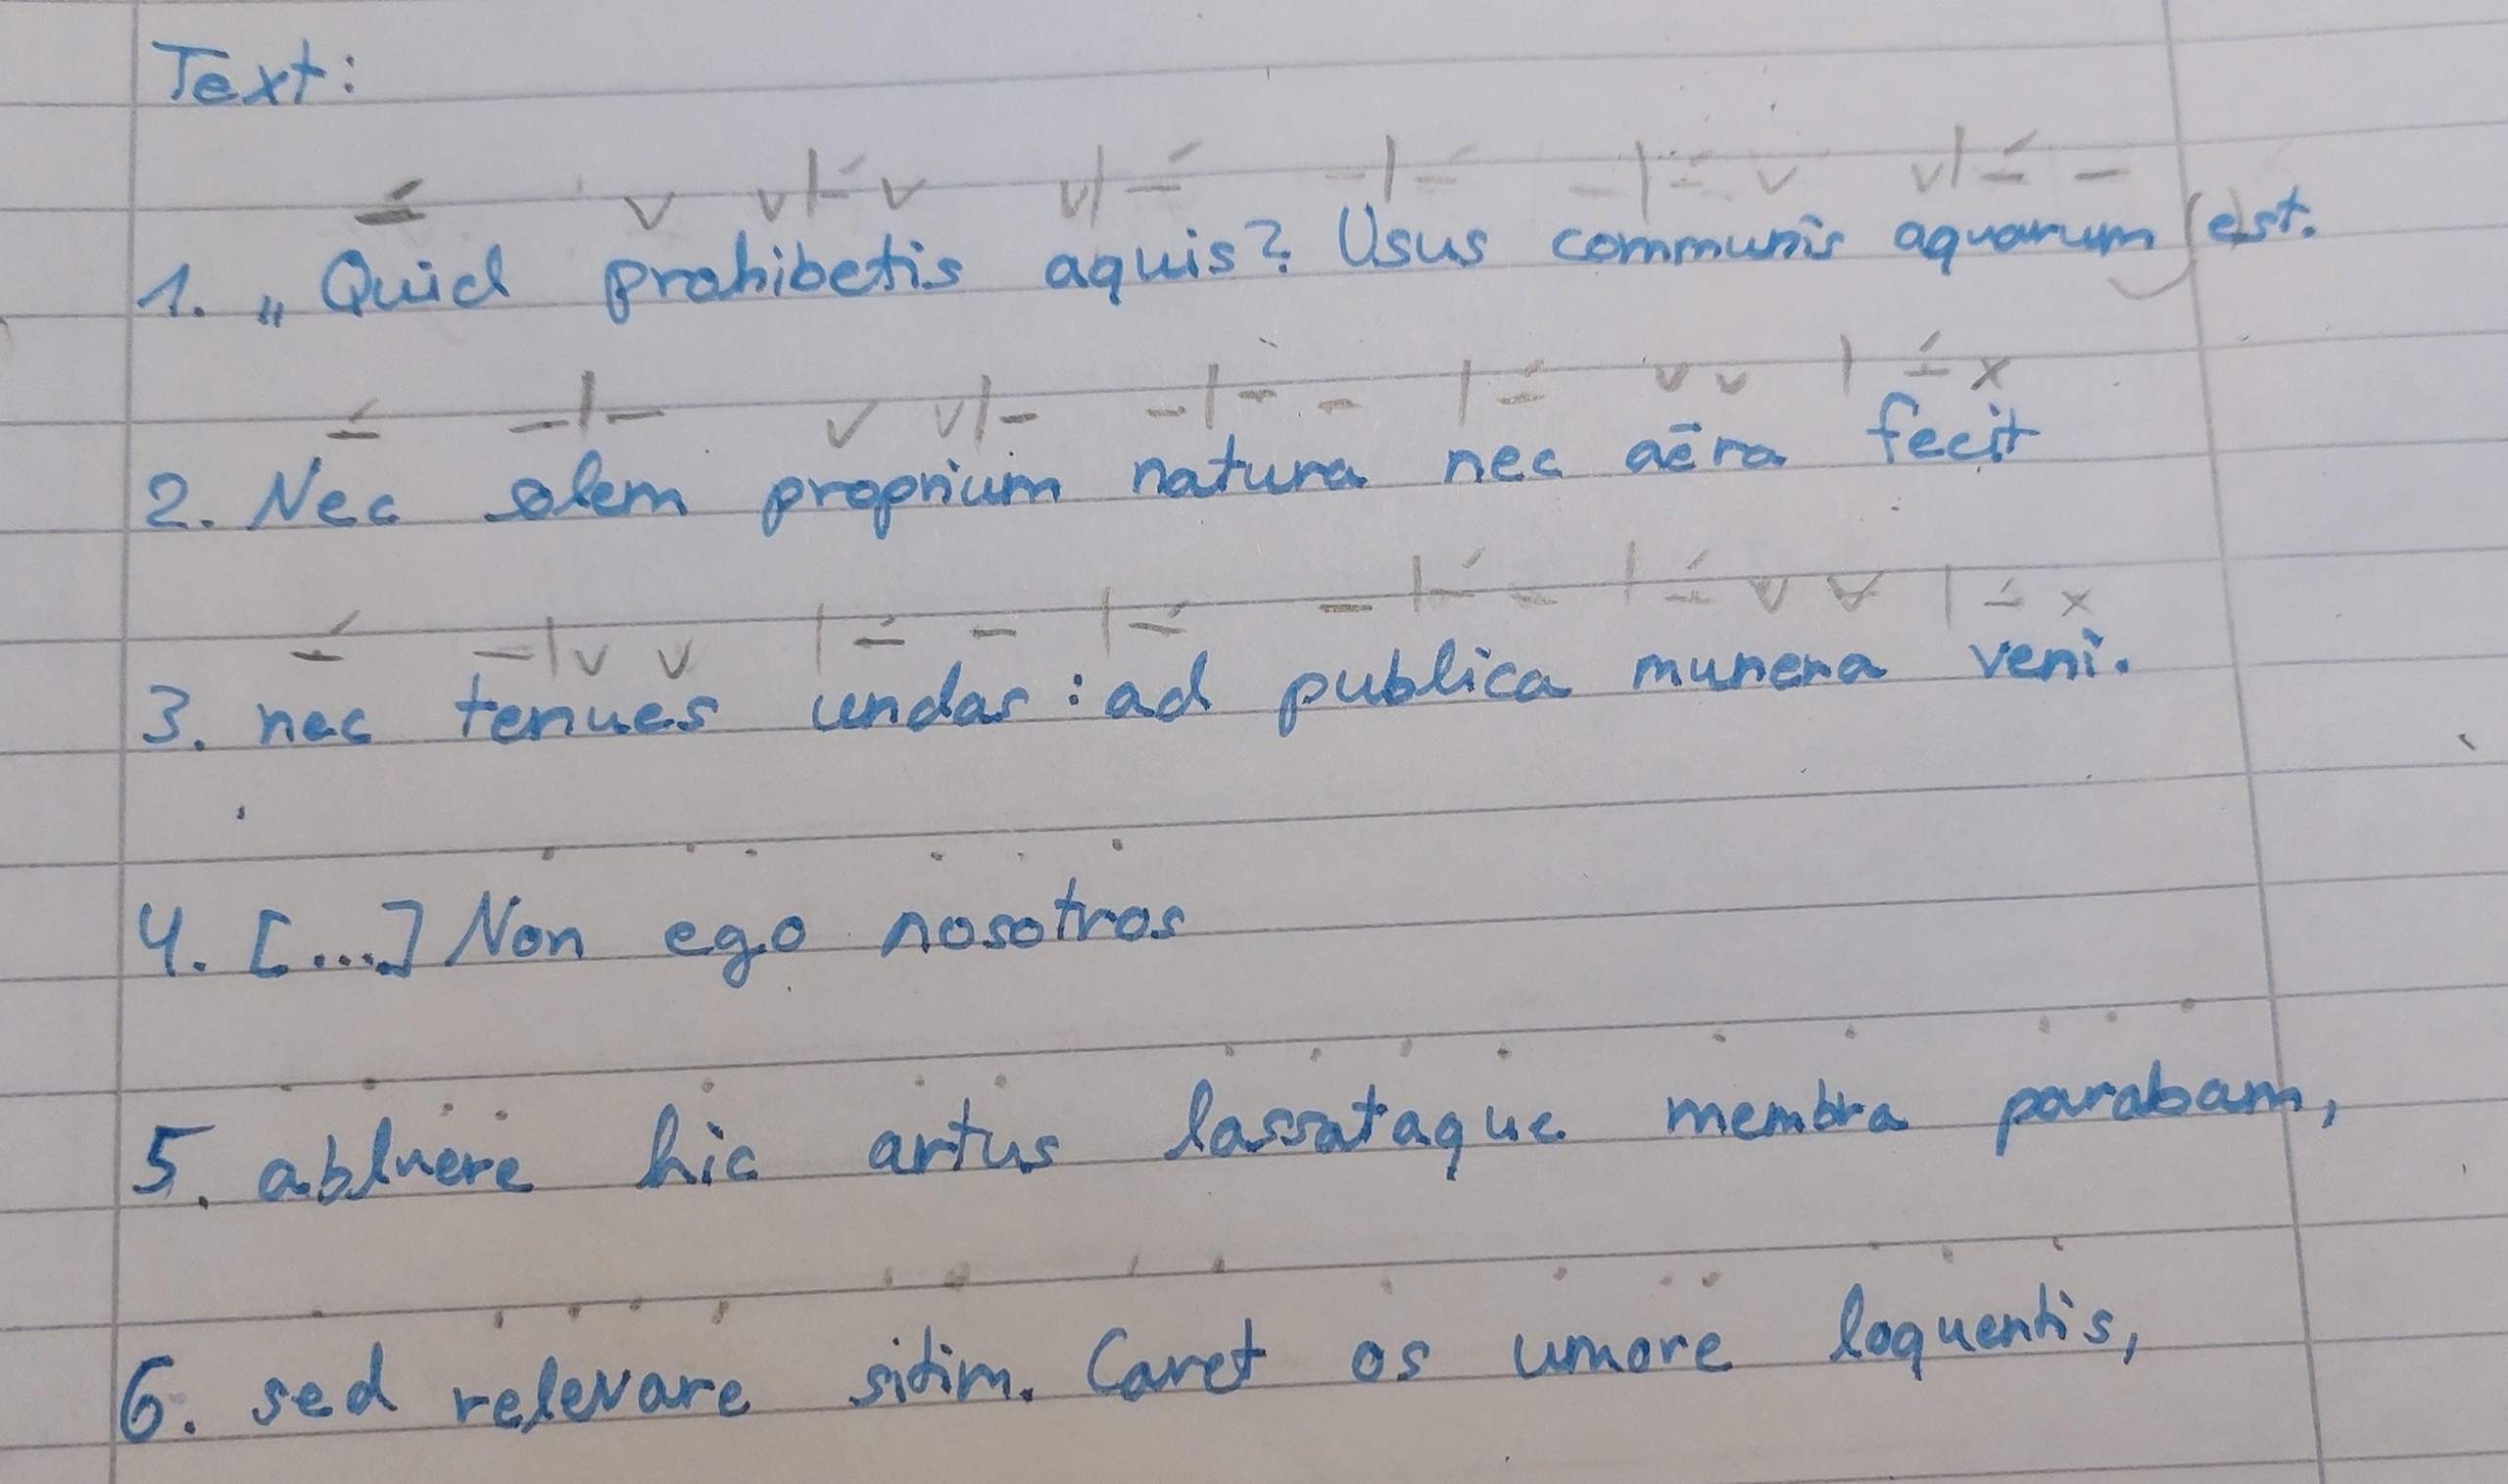 Text:
1. „Quid prohibetis aquis? Usus communis aquarum (e)st.
2. Nec solem proprium natura nec aēra fecit
3. nec tenues undas: ad publica munera veni.
4. [...] Non ego nosotros
5. abluere hic artus lassataque membra parabam,
6. sed relevare sitim. Caret os umore loquentis,